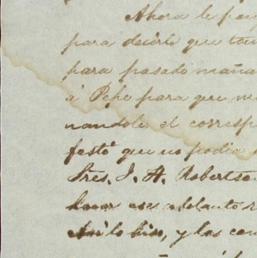 Ahora le
para decirle que
para pasado maña
á Pepe para que
nandole el corresp
festó que no podia
Sres. J. A. Robertso
hacer ese adelanto
Asi lo hice, y los